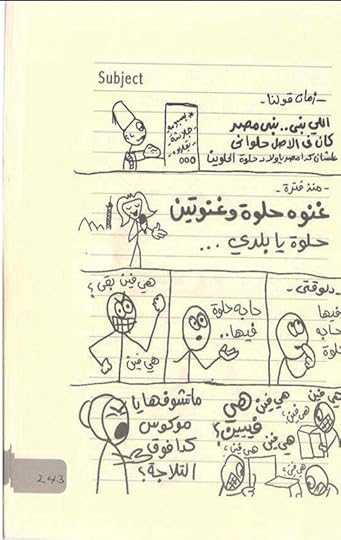 Subject
- زمان قولنا -
اللي بنى.. بنى مصر
كان في الاصل حلواني
علشان كدا مصر ياولاد حلوة الحلوين
بسبوسة
جلاش
- منذ فترة -
غنوه حلوة وغنوتين
حلوة يا بلدي ...
- دلوقتى -
فيها
حاجه
حلوة
حاجه حلوة
فيها..
هي فين بقى؟
هي فين
هي فين
هي فين؟
هي فين
هي
فييين؟
هي فين
هي فين؟
هي فين؟
ماتشوفها يا
موكوس
كدا فوق
التلاجة؟
243